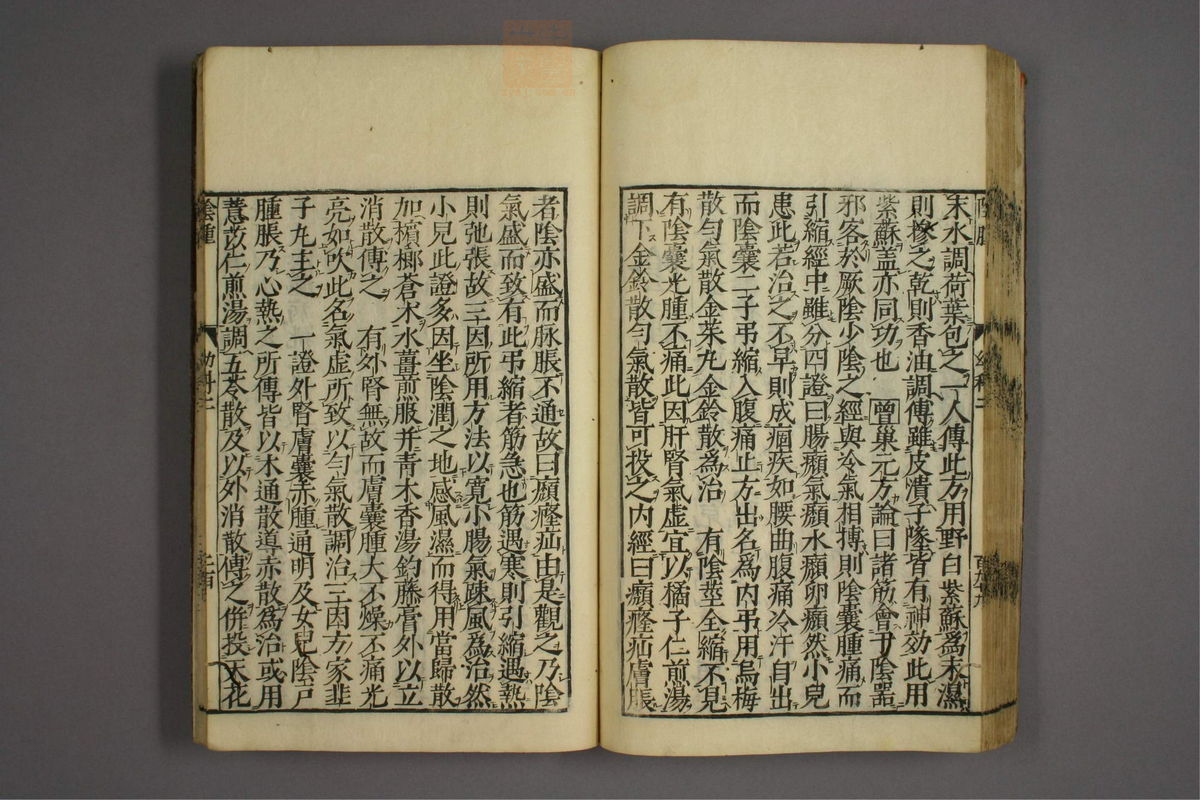 末水調荷葉包之一人傳此方用野白紫蘇為末濕
則摻之乾則香油調傳雖皮潰子墜皆有神効此用
紫蘇盖亦同功也 曾巢元方論曰諸筋會于陰器
邪客於厥陰少陰之經與冷氣相搏則陰囊腫痛而
引縮經中雖分四證曰腸㿗氣㿗水㿗卵㿗然小兒
患此若治之不早則成痼疾如腰曲腹痛冷汗自出
而陰囊二子弔縮入腹痛止方出名為内弔用烏梅
散匀氣散金茱丸金鈴散為治 有陰莖全縮不見
有陰囊光腫不痛此因肝腎氣虚宜以橘子仁煎湯
調下金鈴散匀氣散皆可投之内經曰㿗癃疝膚脹
者陰亦盛而脉脹不通故曰㿗癃疝由是觀之乃陰
氣盛而致有此弔縮者筋急也筋遇寒則引縮遇熱
則弛張故三因所用方法以寛小腸氣疎風為治然
小兒此證多因坐陰潤之地感風濕而得用當歸散
加檳榔蒼木水薑煎服并青木香湯鈎藤膏外以立
消散傅之 有外腎無故而膚囊腫大不燥不痛光
亮如吹此名氣虚所致以匀氣散調治三因方家韭
子丸主之 一證外腎膚囊赤腫通明及女兒陰戸
腫脹乃心熱之所傳皆以木通散導赤散為治或用
薏苡仁煎湯調五苓散及以外消散傅之併投天花
陰腫
幼科二